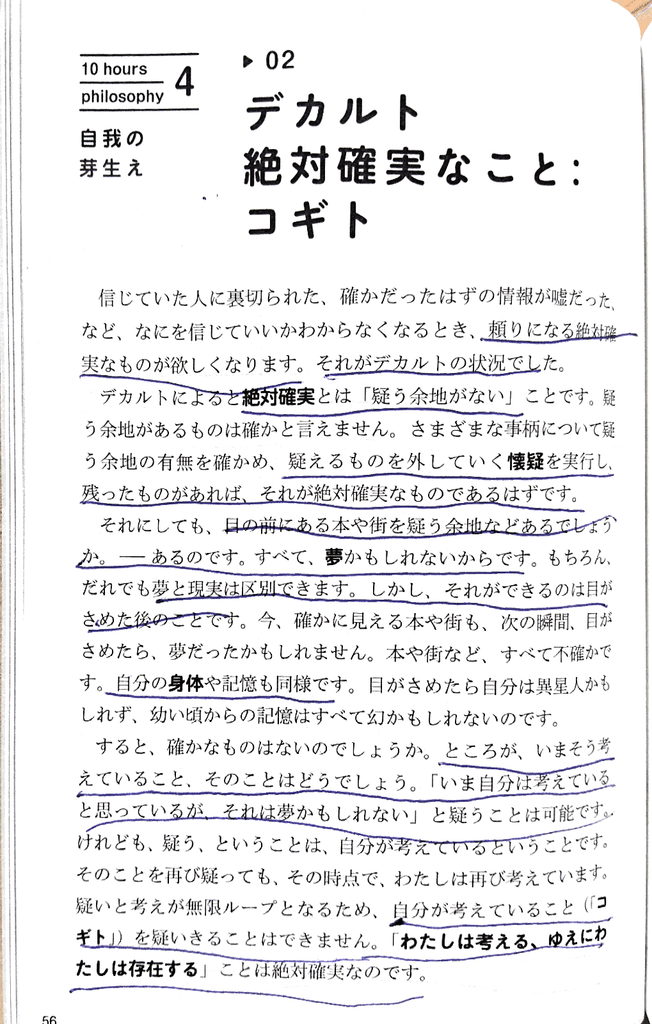 10 hours
philosophy
4
自我の
芽生え
▶ 02
デカルト
絶対確実なこと:
コギト
信じていた人に裏切られた、確かだったはずの情報が嘘だった、
など、なにを信じていいかわからなくなるとき、頼りになる絶対確
実なものが欲しくなります。それがデカルトの状況でした。
デカルトによると絶対確実とは「疑う余地がない」ことです。疑
う余地があるものは確かと言えません。さまざまな事柄について疑
う余地の有無を確かめ、疑えるものを外していく懐疑を実行し、
残ったものがあれば、それが絶対確実なものであるはずです。
それにしても、目の前にある本や街を疑う余地などあるでしょう
か。── あるのです。すべて、夢かもしれないからです。もちろん、
だれでも夢と現実は区別できます。しかし、それができるのは目が
さめた後のことです。今、確かに見える本や街も、次の瞬間、目が
さめたら、夢だったかもしれません。本や街など、すべて不確かで
す。自分の身体や記憶も同様です。目がさめたら自分は異星人かも
しれず、幼い頃からの記憶はすべて幻かもしれないのです。
すると、確かなものはないのでしょうか。ところが、いまそう考
えていること、そのことはどうでしょう。「いま自分は考えている
と思っているが、それは夢かもしれない」と疑うことは可能です。
けれども、疑う、ということは、自分が考えているということです。
そのことを再び疑っても、その時点で、わたしは再び考えています。
疑いと考えが無限ループとなるため、自分が考えていること（「コ
ギト」）を疑いきることはできません。「わたしは考える、ゆえにわ
たしは存在する」ことは絶対確実なのです。
56